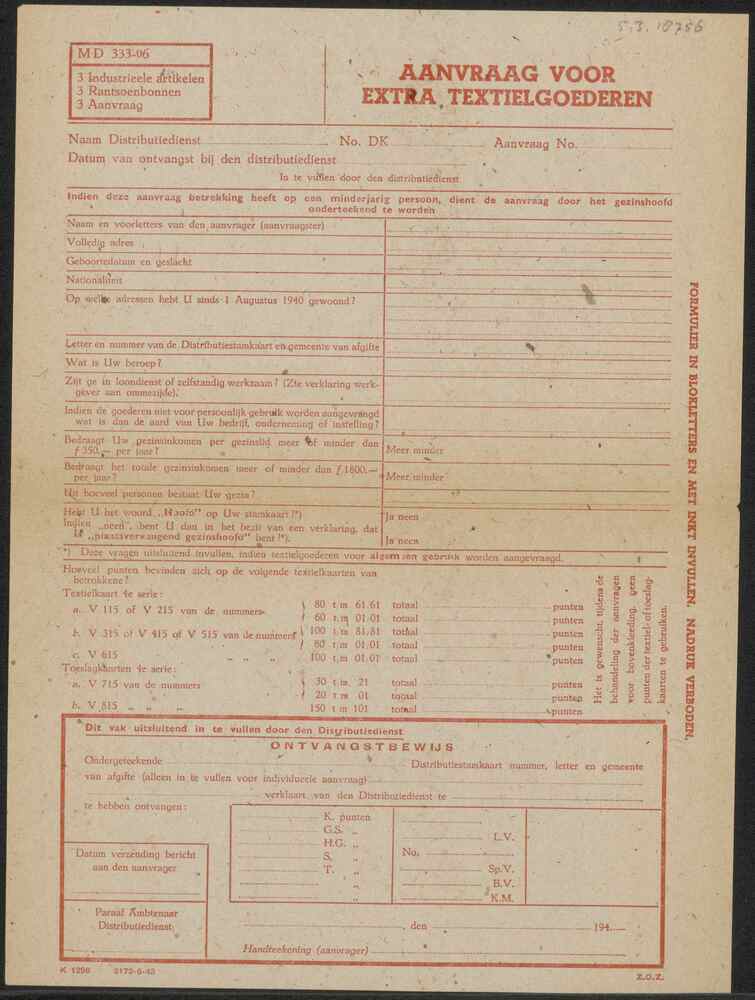 5.3. 18756
MD 333-06
3 Industrieele artikelen
3 Rantsoenbonnen
3 Aanvraag
AANVRAAG VOOR
EXTRA TEXTIELGOEDEREN
Naam Distributiedienst No. DK Aanvraag No.
Datum van ontvangst bij den distributiedienst
In te vullen door den distributiedienst
Indien deze aanvraag betrekking heeft op een minderjarig persoon, dient de aanvraag door het gezinshoofd
onderteekend te worden
Naam en voorletters van den aanvrager (aanvraagster)
Volledig adres
Geboortedatum en geslacht
Nationaliteit
Op welke adressen hebt U sinds 1 Augustus 1940 gewoond?
Letter en nummer van de Distributiestamkaart en gemeente van afgifte
Wat is Uw beroep?
Zijt ge in loondienst of zelfstandig werkzaam? (Zie verklaring werk-
gever aan ommezijde).
Indien de goederen niet voor persoonlijk gebruik worden aangevraagd
wat is dan de aard van Uw bedrijf, onderneming of instelling?
Bedraagt Uw gezinsinkomen per gezinslid meer of minder dan
f 350,— per jaar? Meer minder
Bedraagt het totale gezinsinkomen meer of minder dan f 1800,—
per jaar? Meer minder
Uit hoeveel personen bestaat Uw gezin?
Hebt U het woord „Hoofd" op Uw stamkaart?*) Ja neen
Indien „neen", bent U dan in het bezit van een verklaring, dat
U „plaatsvervangend gezinshoofd" bent?*). Ja neen
*) Deze vragen uitsluitend invullen, indien textielgoederen voor algemeen gebruik worden aangevraagd.
Hoeveel punten bevinden zich op de volgende textielkaarten van
betrokkene?
Textielkaart 4e serie:
a. V 115 of V 215 van de nummers 80 t/m 61.61 totaal punten
60 t/m 01.01 totaal punten
b. V 315 of V 415 of V 515 van de nummers 100 t/m 81.81 totaal punten
80 t/m 01.01 totaal punten
c. V 615 „ „ „ 100 t/m 01.01 totaal punten
Toeslagkaarten 4e serie:
a. V 715 van de nummers 30 t/m 21 totaal punten
20 t/m 01 totaal punten
b. V 815 „ „ „ 150 t/m 101 totaal punten
Het is gewenscht, tijdens de
behandeling der aanvragen
voor bovenkleeding, geen
punten der textiel- of toeslag-
kaarten te gebruiken.
FORMULIER IN BLOKLETTERS EN MET INKT INVULLEN. NADRUK VERBODEN.
Dit vak uitsluitend in te vullen door den Distributiedienst
ONTVANGSTBEWIJS
Ondergeteekende Distributiestamkaart nummer, letter en gemeente
van afgifte (alleen in te vullen voor individueele aanvraag)
verklaart van den Distributiedienst te
te hebben ontvangen:
K. punten
G.S. „
H.G. „
S. „
T. „
„
No.
L.V.
Sp.V.
B.V.
K.M.
Datum verzending bericht
aan den aanvrager
Paraaf Ambtenaar
Distributiedienst
, den 194
Handteekening (aanvrager)
K 1296 2172-6-43 Z.O.Z.